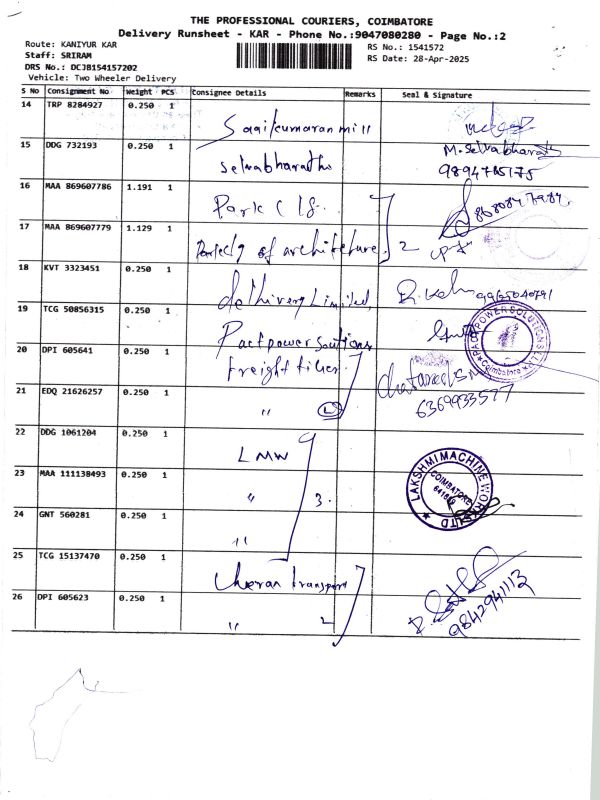 THE PROFESSIONAL COURIERS, COIMBATORE
Delivery Runsheet - KAR - Phone No.:9047080280 - Page No.:2
Route: KANIYUR KAR
RS No.: 1541572
Staff: SRIRAM
RS Date: 28-Apr-2025
DRS No.: DCJB154157202
Vehicle: Two Wheeler Delivery
S No Consignment No Weight PCS Consignee Details Remarks Seal & Signature
14 TRP 8284927 0.250 1
15 DDG 732193 0.250 1 selvabharathi M.Selvabharathi
9894765175
16 MAA 869607786 1.191 1 Park C
17 MAA 869607779 1.129 1 of architeture 2
18 KVT 3323451 0.250 1 delhivery Limited,
19 TCG 50856315 0.250 1 Pactpower solutions PACT POWER SOLUTIONS Coimbatore
20 DPI 605641 0.250 1 freight
21 EDQ 21626257 0.250 1 " 2 6369933577
22 DDG 1061204 0.250 1 LMW
23 MAA 111138493 0.250 1 " 3. LAKSHMI MACHINE WORKS LTD COIMBATORE
24 GNT 560281 0.250 1 "
25 TCG 15137470 0.250 1 Cheran transport
26 DPI 605623 0.250 1 " 2 9842941113